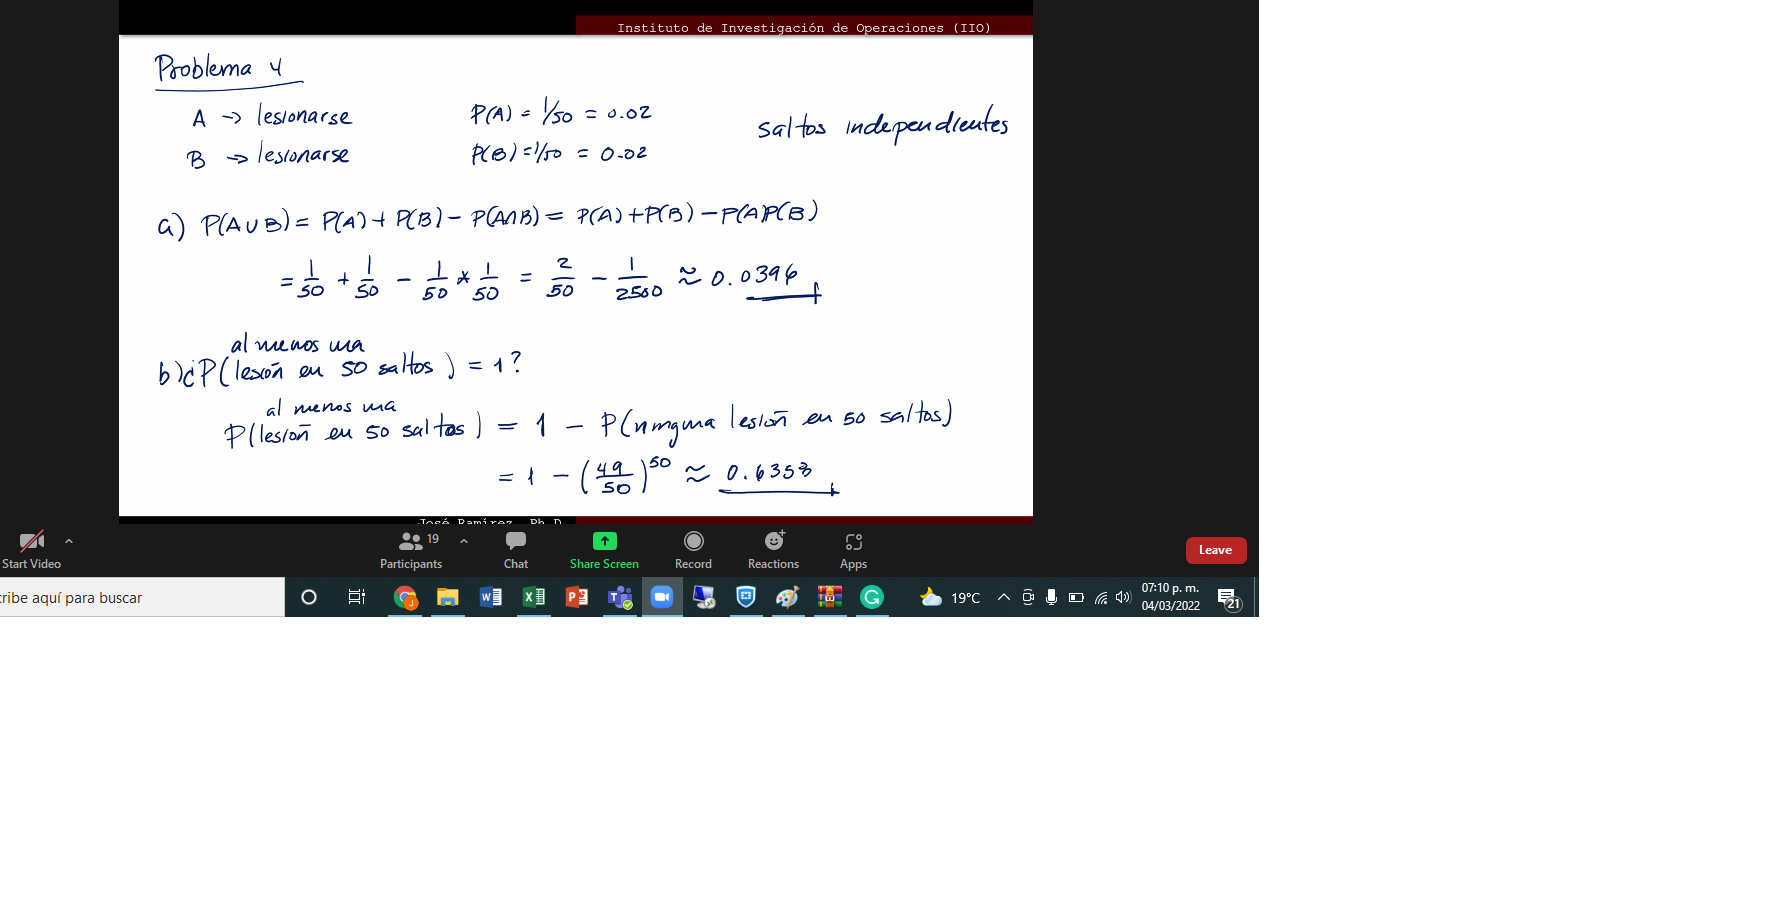 Instituto de Investigación de Operaciones (IIO)
Problema 4
A → lesionarse P(A) = 1/50 = 0.02 saltos independientes
B → lesionarse P(B) = 1/50 = 0.02
a) P(A∪B) = P(A) + P(B) - P(A∩B) = P(A) + P(B) - P(A)P(B)
= 1/50 + 1/50 - 1/50 * 1/50 = 2/50 - 1/2500 ≈ 0.0396
al menos una
b) ¿P(lesión en 50 saltos) = 1?
al menos una
P(lesión en 50 saltos) = 1 - P(ninguna lesión en 50 saltos)
= 1 - (49/50)^50 ≈ 0.6358
José Ramírez, Ph.D.
19
Start Video Participants Chat Share Screen Record Reactions Apps Leave
cribe aquí para buscar 19°C 07:10 p. m.
04/03/2022 21